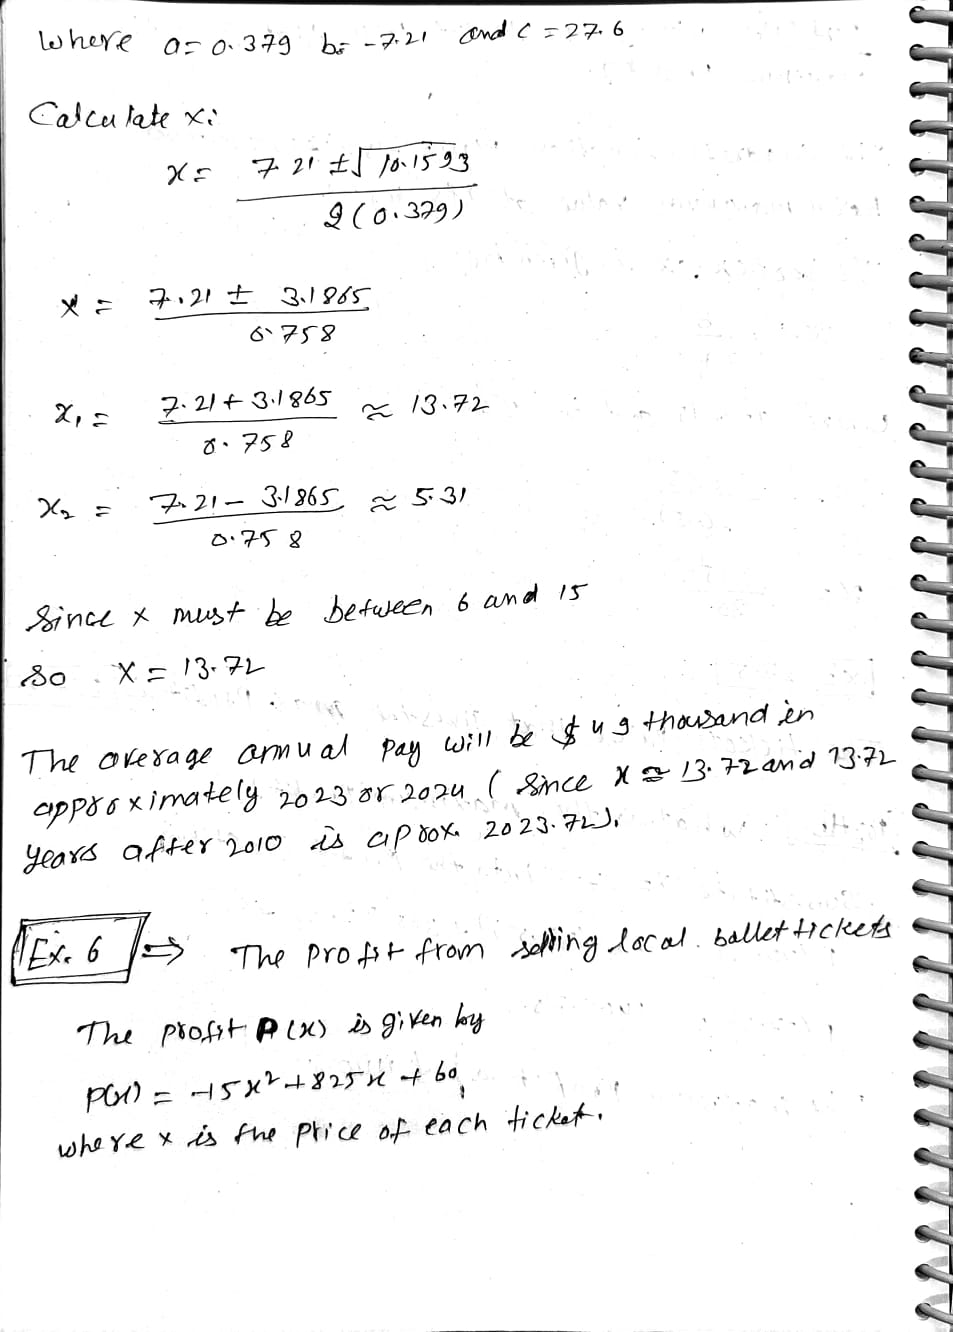 Where a= 0.379 b= -7.21 and c = 27.6
Calculate x:
x = 7 21 ±√10.1593
2(0.379)
x = 7.21 ± 3.1865
0.758
x₁ = 7.21 + 3.1865 ≈ 13.72
0.758
x₂ = 7.21 – 3.1865 ≈ 5.31
0.75 8
Since x must be between 6 and 15
So X = 13.72
The average annual pay will be $ 49 thousand in
approximately 2023 or 2024 ( Since x ≈ 13.72 and 13.72
years after 2010 is aprox. 2023.72).
Ex. 6 ⇒ The profit from selling local ballet tickets
The profit P(x) is given by
P(x) = -15x² + 825x + 60,
where x is the price of each ticket.